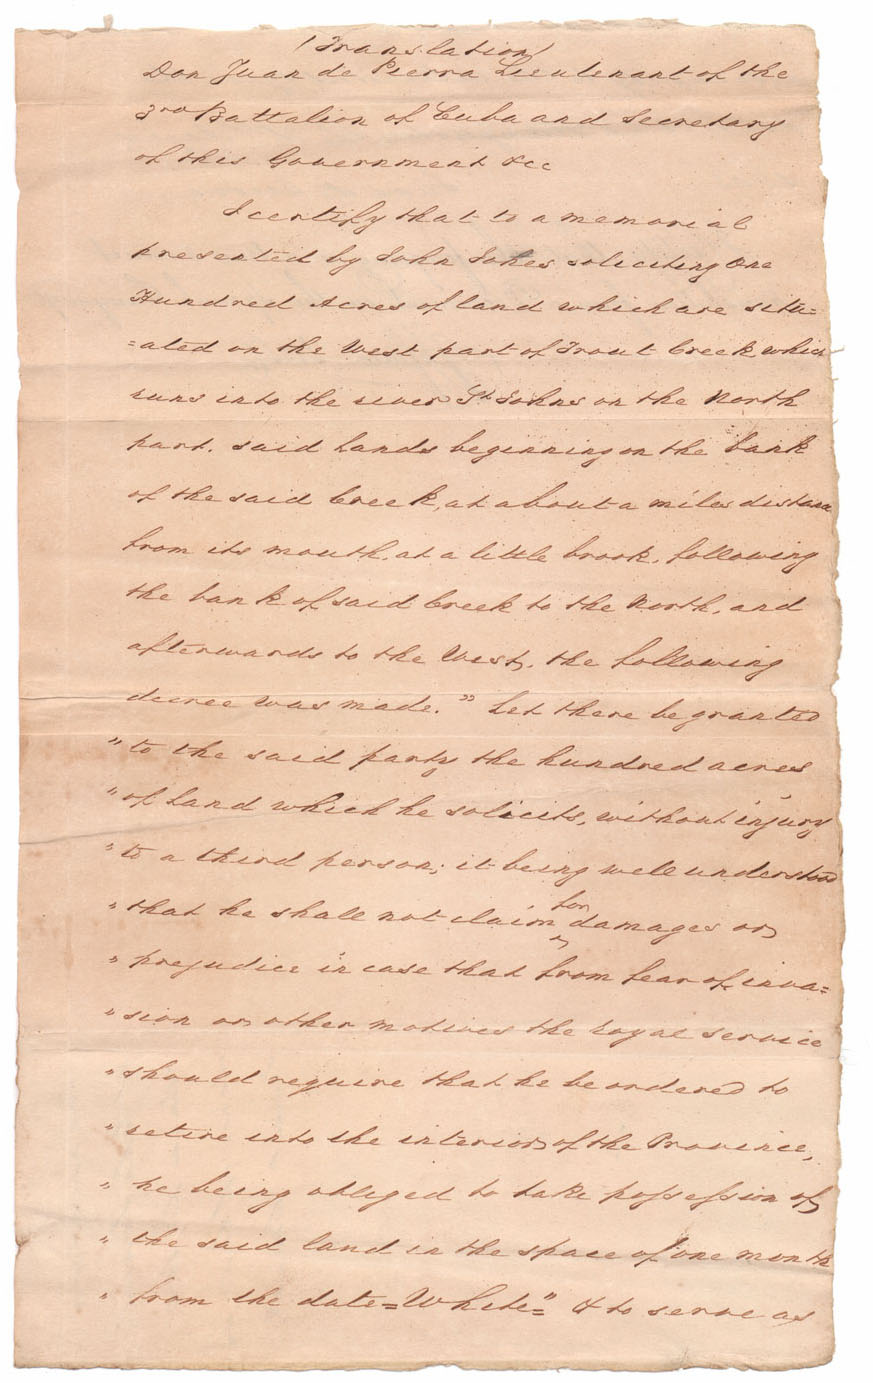 (Translation)
Don Juan de Pierra Lieutenant of the
3rd Battalion of Cuba and Secretary
of this Government &cc
I certify that to a memorial
presented by John Jones soliciting One
Hundred Acres of land which are situ=
=ated on the West part of Trout Creek which
runs into the river St Johns on the North
part. said Lands beginning on the bank
of the said Creek, at about a miles distance
from its mouth, at a little brook, following
the bank of said Creek to the North, and
afterwards to the West, the following
decree was made. " Let there be granted
" to the said party the hundred acres
" of Land which he solicits, without injury
" to a third person; it being well understood
" that he shall not claim for damages or
" prejudice in case that from fear of inva=
" sion or other motives the royal service
" should require that he be ordered to
" retire into the interior of the Province,
" he being obliged to take possession of
" the said land in the space of one month
" from the date = White =" & to serve as